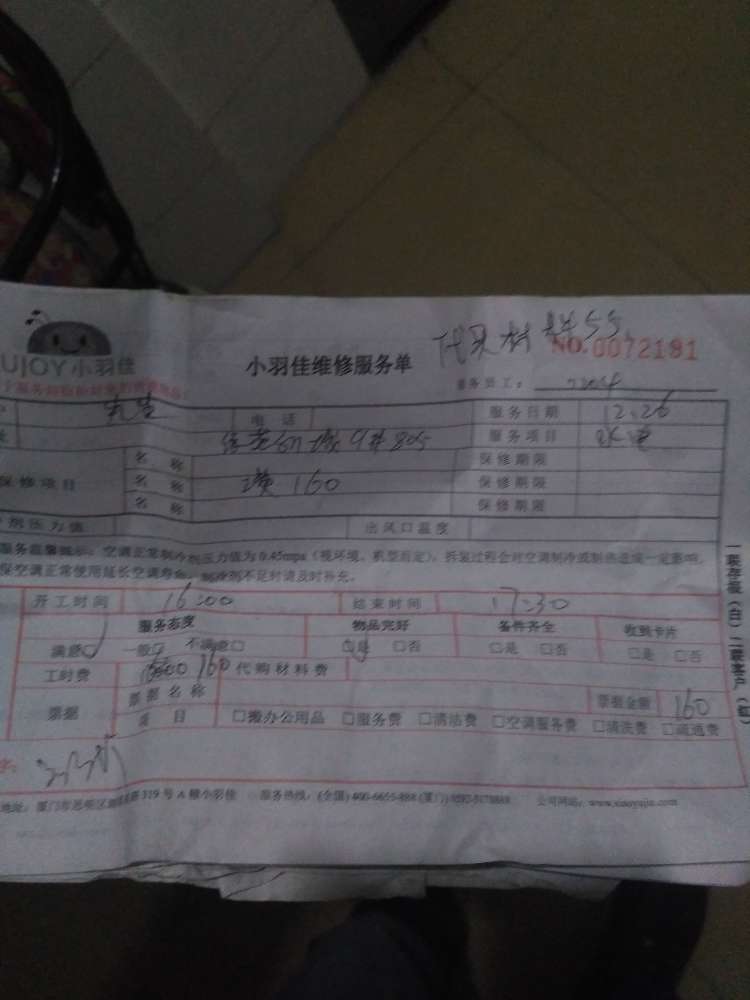 UJOY小羽佳
小羽佳维修服务单
代买材料55
NO.0072181
服务员工:
电话
服务日期 12.26
9#805
服务项目 水电
名称
保修期限
保修项目 名称 160
保修期限
名称
保修期限
剂压力值 出风口温度
服务温馨提示:空调正常制冷剂压力值为0.45mpa(视环境、机型而定),拆装过程会对空调制冷或制热造成一定影响,
保空调正常使用延长空调寿命,制冷剂不足时请及时补充。
开工时间 16:00 结束时间 17:30
服务态度 物品完好 备件齐全 收到卡片
满意 一般 不满意□ □是 □否 □是 □否 □是 □否
工时费 160 代购材料费
票据 票据名称 票据金额 160
项目 □搬办公用品 □服务费 □清洁费 □空调服务费 □清洗费 □疏通费
地址:厦门市思明区 319号A幢小羽佳 服务热线:(全国)400-6655-888(厦门)0592-5178888 公司网站:www.xiaoyujia.com
一联存根(白)二联客户(红)